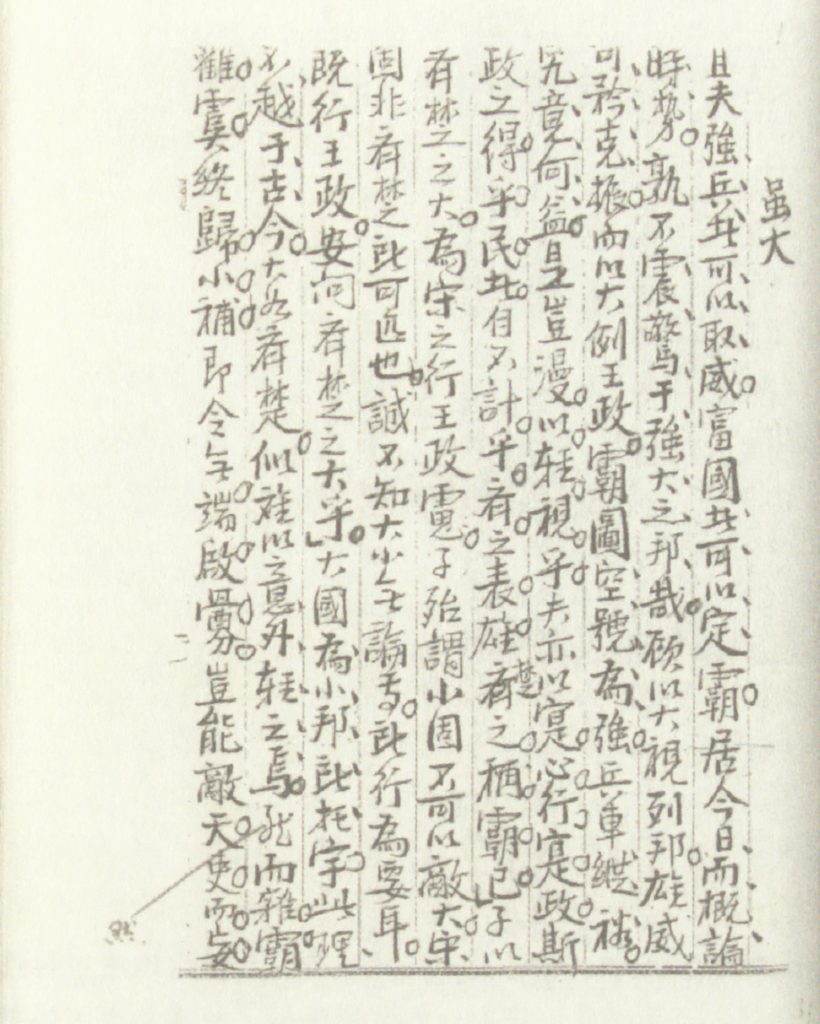 虽大
且夫強兵此可以取威富國此可以定霸居今日而概論
時勢孰不震驚于強大之邦哉顧以大視列邦雄威
可矜克振而以大例王政霸圖空號為強兵車縱
究竟何益是豈漫以轻視乎夫亦以寔心行寔政斯
政之得乎民此自不計乎齊之表雄楚齊之稱霸已子以
齊楚之大為宋之行王政電子殆謂小固不可以敵大宋
固非齊楚此可匹也誠不知大小無論焉此行為要耳
既行王政安问齊楚之大乎大國為小邦此托宇此理
不越于古今大若齊楚似难以之意外轻之焉然而雜霸
雖虞終歸小補即令無端啟釁豈能敵天吏而妄